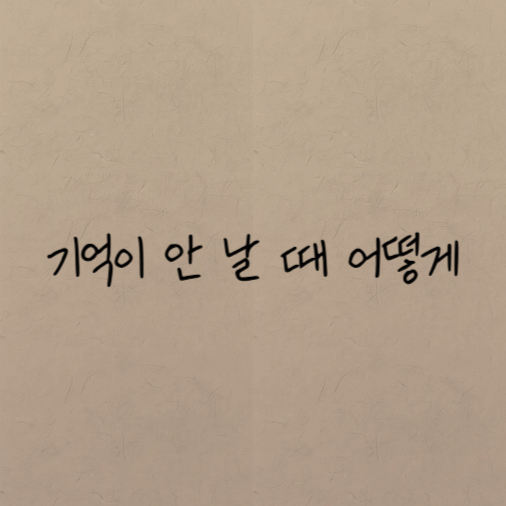 기억이 안 날 때 어떻게